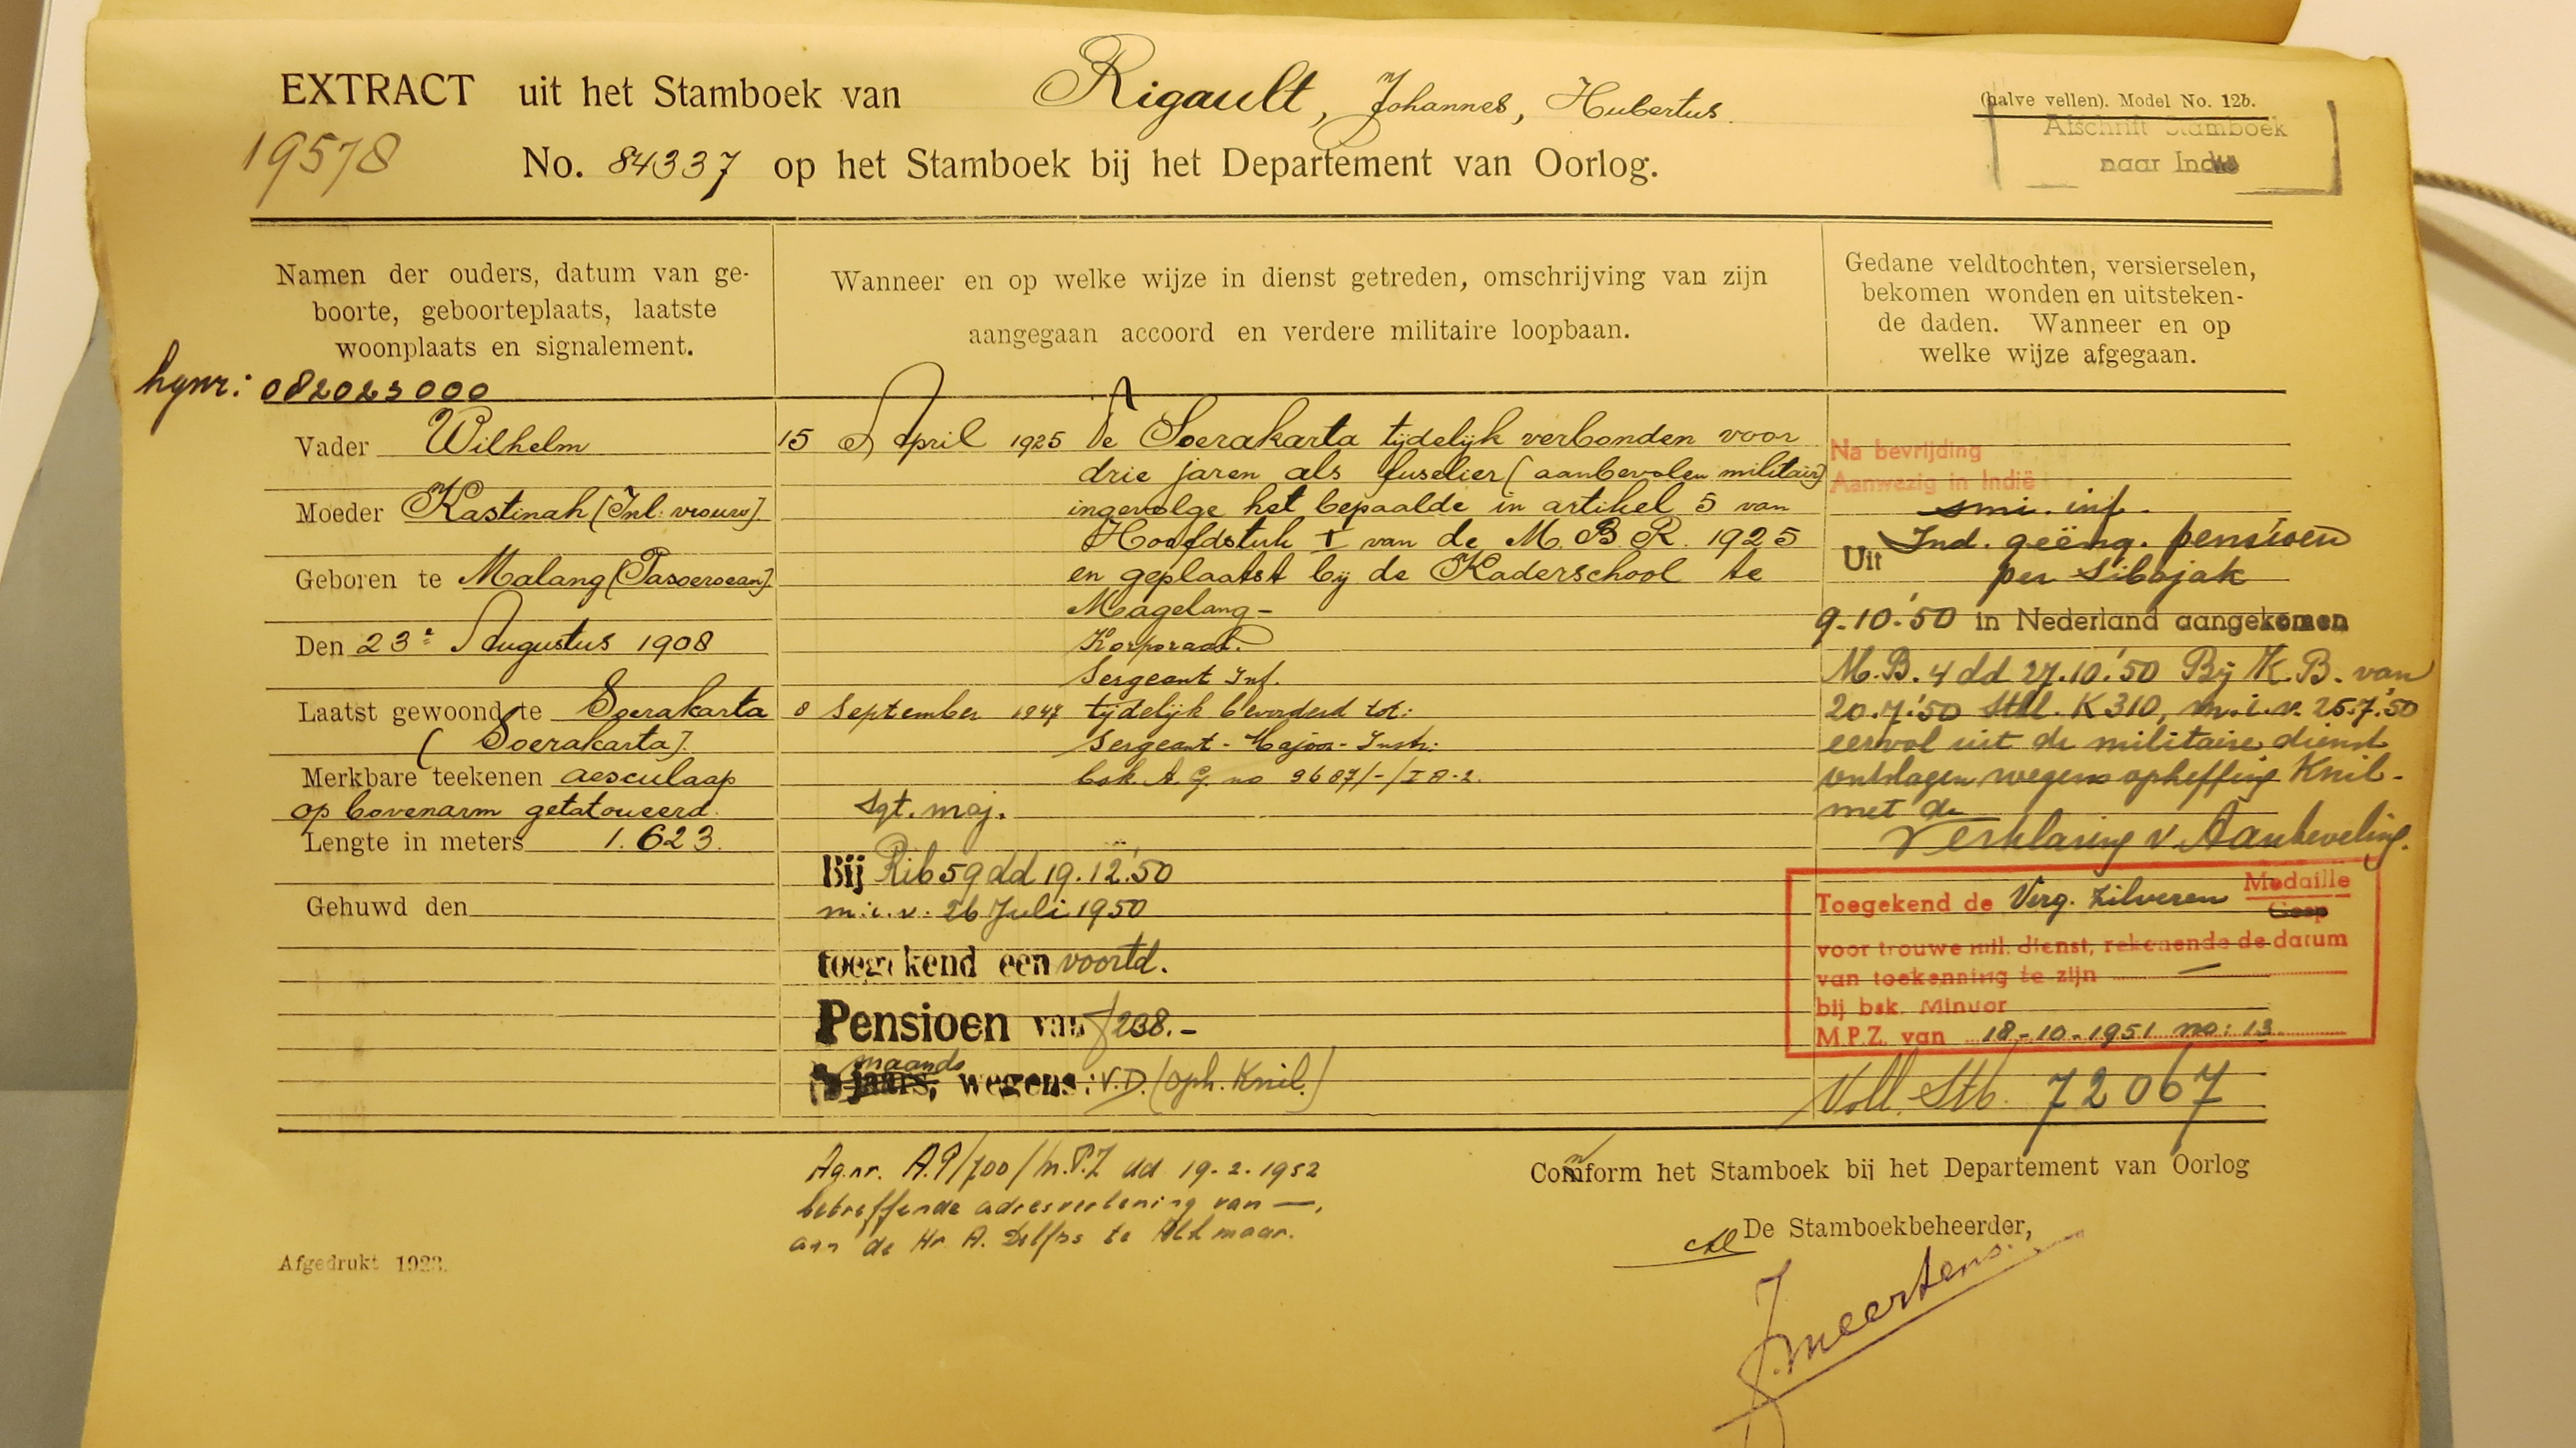 EXTRACT uit het Stamboek van Rigault, Johannes, Hubertus.
(halve vellen). Model No. 12b.
Afschrift Stamboek
naar Indië
19578
No. 84337 op het Stamboek bij het Departement van Oorlog.
Namen der ouders, datum van ge-
boorte, geboorteplaats, laatste
woonplaats en signalement.
hgnr: 082023000
Vader Wilhelm
Moeder Kastinah (Inl. vrouw).
Geboren te Malang (Pasoeroean).
Den 23e Augustus 1908
Laatst gewoond te Soerakarta
(Soerakarta).
Merkbare teekenen aesculaap
op bovenarm getatoueerd.
Lengte in meters 1.623.
Gehuwd den
Wanneer en op welke wijze in dienst getreden, omschrijving van zijn
aangegaan accoord en verdere militaire loopbaan.
15 April 1925 Te Soerakarta tijdelijk verbonden voor
drie jaren als fuselier (aanbevolen militair)
ingevolge het bepaalde in artikel 5 van
Hoofdstuk I van de M.B.R. 1925
en geplaatst bij de Kaderschool te
Magelang-
Korporaal.
Sergeant Inf.
8 September 1947 tijdelijk bevorderd tot:
Sergeant-Majoor-Instr:
bsk. A.G. no 9687/-/IA-2.
Sgt. maj.
Bij Rib 59 dd 19.12.'50
m.i.v. 26 Juli 1950
toegekend een voortd.
Pensioen van f 238.-
maands
jaars, wegens: V.D. (oph. Knil.)
Gedane veldtochten, versierselen,
bekomen wonden en uitsteken-
de daden. Wanneer en op
welke wijze afgegaan.
Na bevrijding
Aanwezig in Indië
smi. inf.
Uit Ind. geëng. pensioen
per Sibajak
9.10.'50 in Nederland aangekomen
M.B. 4 dd 27.10.'50 Bij K.B. van
20.7.'50 Stbl. K310, m.i.v. 26.7.'50
eervol uit de militaire dienst
ontslagen wegens opheffing Knil-
met de
Verklaring v. Aanbeveling.
Toegekend de Verg. Zilveren Medaille
Gesp
voor trouwe mil. dienst, rekenende de datum
van toekenning te zijn —
bij bsk. Minuor
M.P.Z. van 18-10-1951 no: 13
Voll. Stb. 72067
Ag.nr. A.P/700/M.P.Z dd 19-2-1952
betreffende adresverlening van —,
aan de Hr A. Delfos te Alkmaar.
Comform het Stamboek bij het Departement van Oorlog
De Stamboekbeheerder,
J. Meertens.
Afgedrukt 1923.